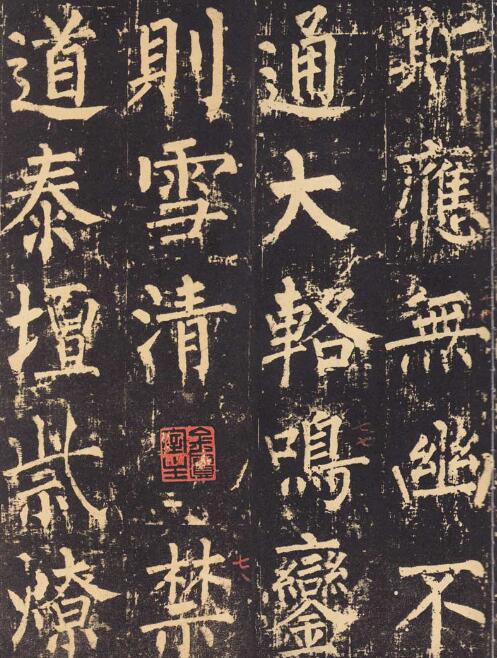 斯應無幽不
通大輅鳴鑾
則雪清禁
道泰壇祡燎